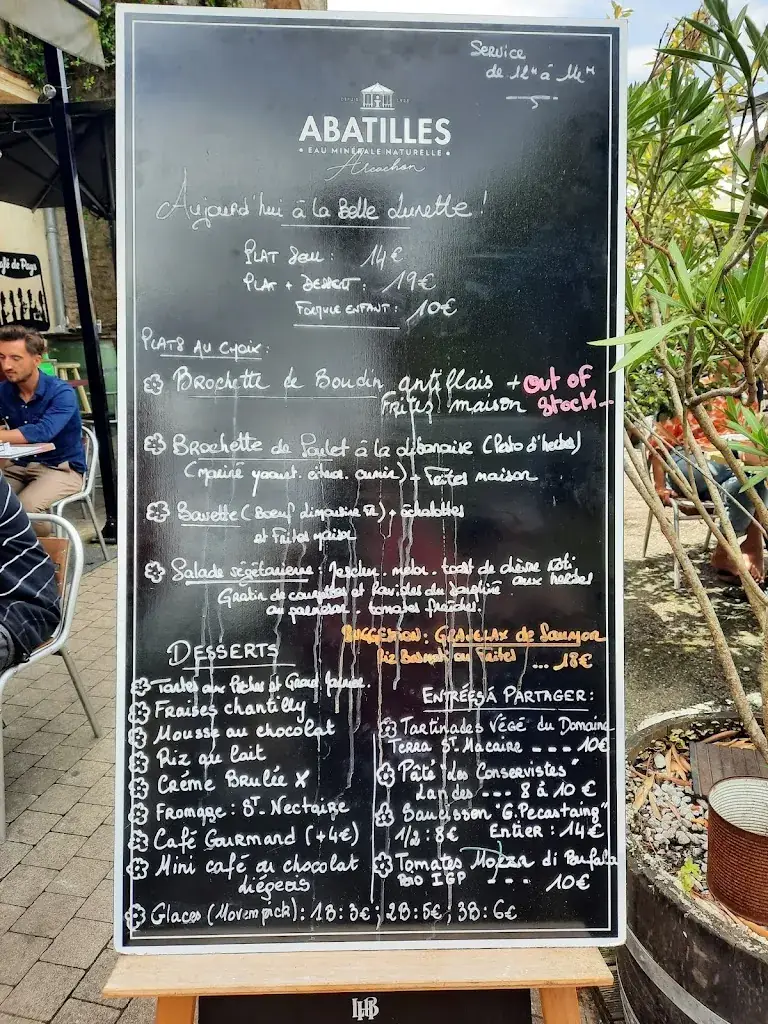 Service
de 12H à 14H
ABATILLES
• EAU MINÉRALE NATURELLE •
Arcachon
Aujourd'hui à la Belle Lurette !
PLAT Seul : 14€
PLAT + DESSERT : 19€
FORMULE ENFANT : 10€
PLATS AU CHOIX :
Brochette de Boudin antillais + OUT OF
Frites maison STOCK
Brochette de Poulet à la libanaise (Pesto d'herbes)
(mariné yaourt. citron. cumin) + Frites maison
Bavette (Boeuf limousine FR) + échalottes
et Frites maison
Salade végétarienne : melon. toast de chèvre rôti
aux herbes
Gratin de courgettes et Ravioles du Dauphiné
au parmesan. tomates fraîches.
SUGGESTION : GRAVELAX de Saumon
Riz Basmati ou Frites ... 18€
DESSERTS
Tartes aux Pêches et Grand
Fraises chantilly
Mousse au chocolat
Riz au lait
Crème Brulée X
Fromage : St-Nectaire
Café Gourmand (+4€)
Mini café ou chocolat
liégeois
Glaces (Movempick) : 1B : 3€ ; 2B : 5€ ; 3B : 6€
ENTRÉES À PARTAGER :
Tartinades Végé du Domaine
Terra St. Macaire --- 10€
Pâté des Conservistes"
Landes --- 8 à 10 €
Saucisson "G. Pecastaing"
1/2 : 8€ Entier : 14€
Tomates Mozza di Boufala
BIO IGP --- 10€
afé de Pays
LHB